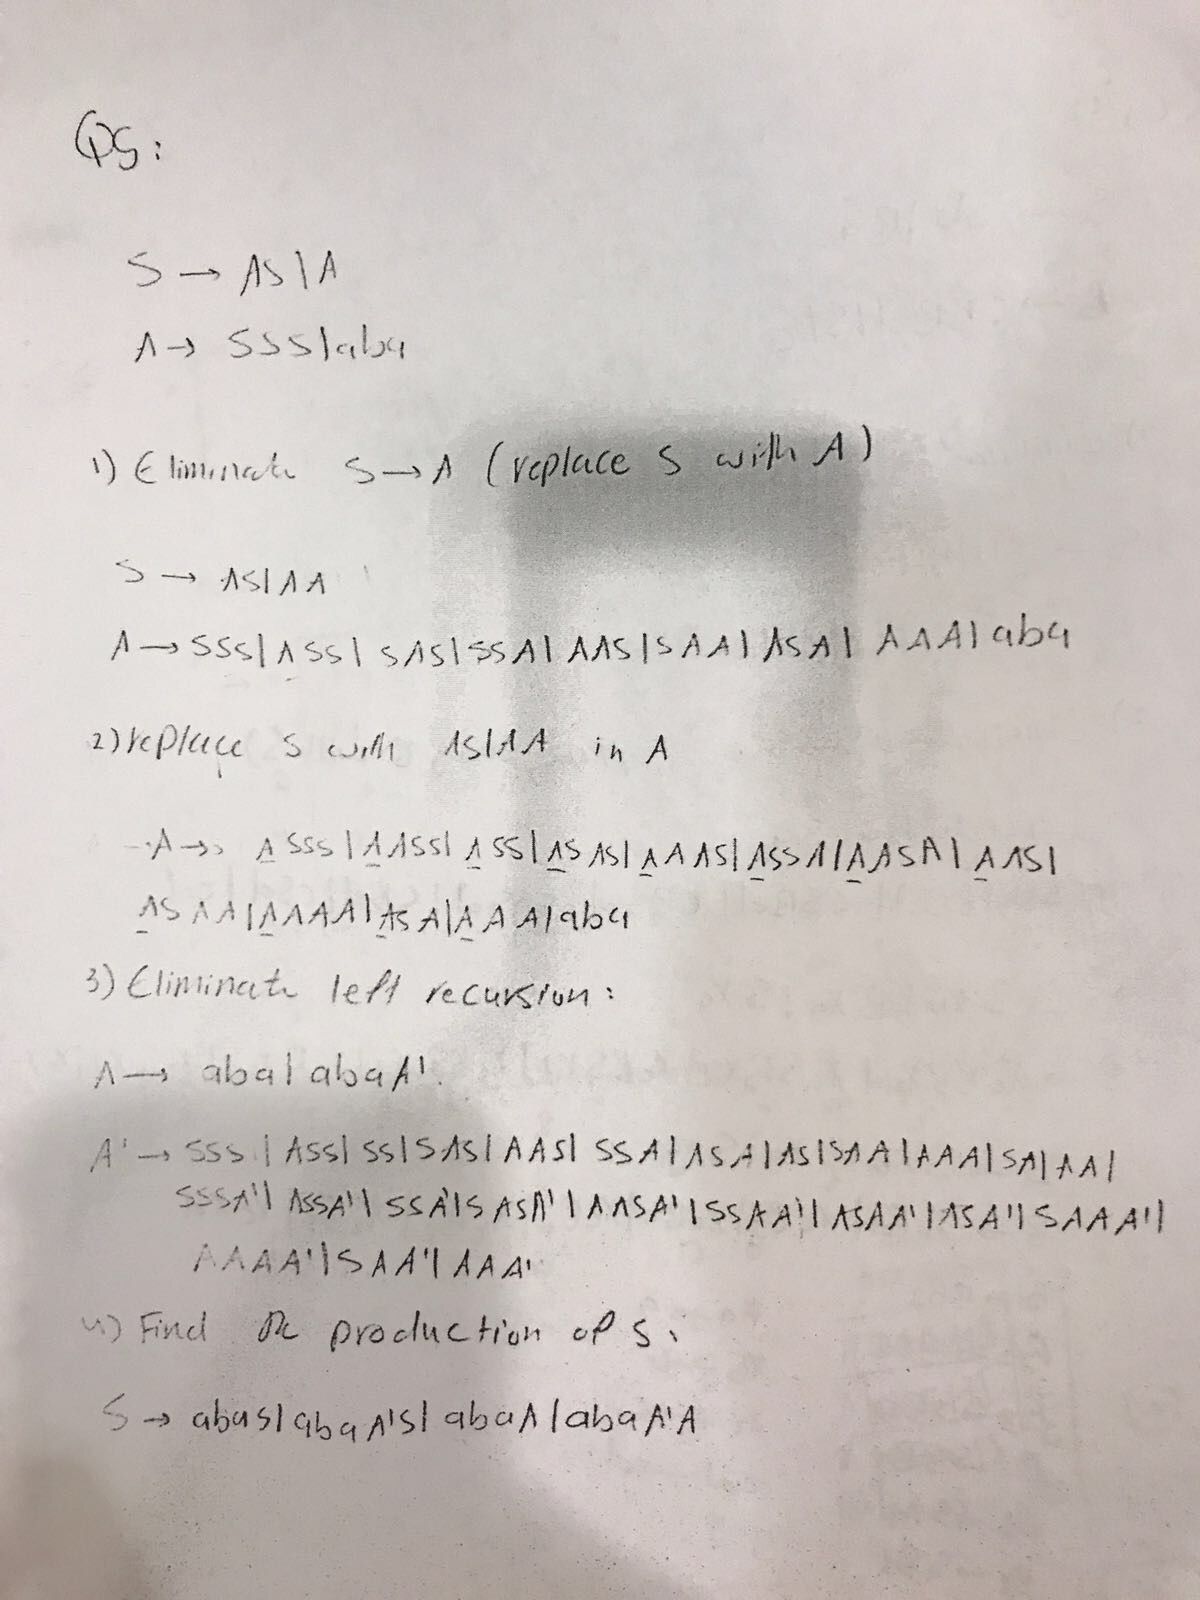 Q5:
S → AS | A
A → SSS | aba
1) Eliminate S → A (replace S with A)
S → AS | AA
A → SSS | ASS | SAS | SSA | AAS | SAA | ASA | AAA | aba
2) replace S with AS | AA in A
A → ASSS | AASS | ASS | ASAS | AAAS | ASSA | AASA | AAS |
ASAA | AAAA | ASA | AAA | aba
3) Eliminate left recursion:
A → aba | abaA'.
A' → SSS | ASS | SS | SAS | AAS | SSA | ASA | AS | SAA | AAA | SA | AA |
SSSA' | ASSA' | SSA' | SASA' | AASA' | SSAA' | ASAA' | ASA' | SAAA' |
AAAA' | SAA' | AAA'
4) Find the production of S:
S → abaS | abaA'S | abaA | abaA'A